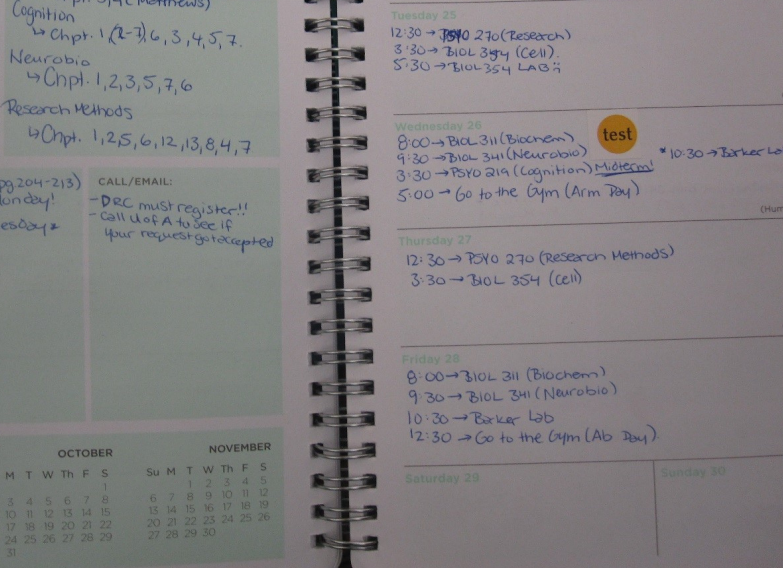 Chpt. 3,4 (Matthews)
Cognition
↳ Chpt. 1,(2-7),6,3,4,5,7.
Neurobio
↳ Chpt. 1,2,3,5,7,6
Research Methods
↳ Chpt. 1,2,5,6,12,13,8,4,7
pg. 204-213)
onday!
esday*
CALL/EMAIL:
- DRC must register!!
- Call U of A to see if
your request got accepted
OCTOBER
M T W Th F S
1
3 4 5 6 7 8
10 11 12 13 14 15
17 18 19 20 21 22
24 25 26 27 28 29
31
NOVEMBER
Su M T W Th F S
1 2 3 4 5
6 7 8 9 10 11 12
13 14 15 16 17 18 19
20 21 22 23 24 25 26
27 28 29 30
Tuesday 25
12:30 → PSYO 270 (Research)
3:30 → BIOL 354 (Cell).
5:30 → BIOL 354 LAB
Wednesday 26
test
8:00 → BIOL 311 (Biochem)
9:30 → BIOL 341 (Neurobio)
*10:30 → Barker La
3:30 → PSYO 219 (Cognition) Midterm!
5:00 → Go to the Gym (Arm Day)
(Hum
Thursday 27
12:30 → PSYO 270 (Research Methods)
3:30 → BIOL 354 (Cell)
Friday 28
8:00 → BIOL 311 (Biochem)
9:30 → BIOL 341 (Neurobio)
10:30 → Barker Lab
12:30 → Go to the Gym (Ab Day).
Saturday 29
Sunday 30